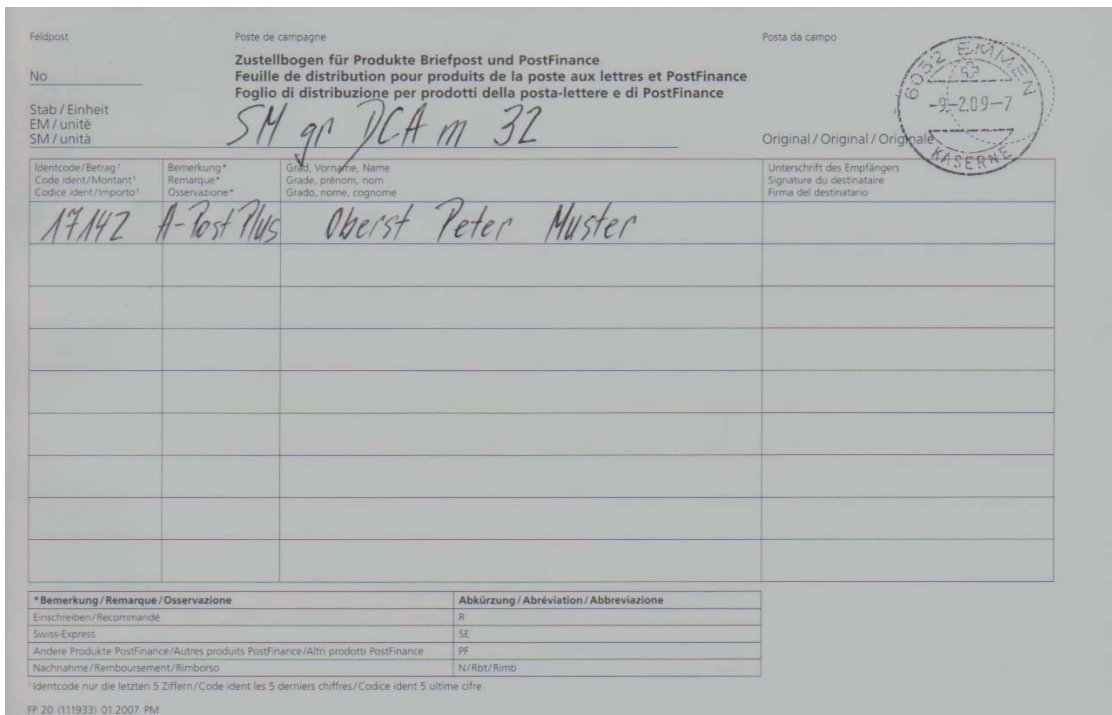 Feldpost
Poste de campagne
Posta da campo
Zustellbogen für Produkte Briefpost und PostFinance
No
Feuille de distribution pour produits de la poste aux lettres et PostFinance
Foglio di distribuzione per prodotti della posta-lettere e di PostFinance
6032 EMMEN
-9.-2.09-7
KASERNE
Stab / Einheit
EM / unité
SM / unità
SM gr DCA m 32
Original / Original / Originale
Identcode/Betrag¹
Code ident/Montant¹
Codice ident/Importo¹
Bemerkung*
Remarque*
Osservazione*
Grad, Vorname, Name
Grade, prénom, nom
Grado, nome, cognome
Unterschrift des Empfängers
Signature du destinataire
Firma del destinatario
17142 A-Post Plus Oberst Peter Muster
*Bemerkung/Remarque/Osservazione Abkürzung/Abréviation/Abbreviazione
Einschreiben/Recommandé R
Swiss-Express SE
Andere Produkte PostFinance/Autres produits PostFinance/Altri prodotti PostFinance PF
Nachnahme/Remboursement/Rimborso N/Rbt/Rimb
¹Identcode nur die letzten 5 Ziffern/Code ident les 5 derniers chiffres/Codice ident 5 ultime cifre
FP 20 (111933) 01 2007 PM